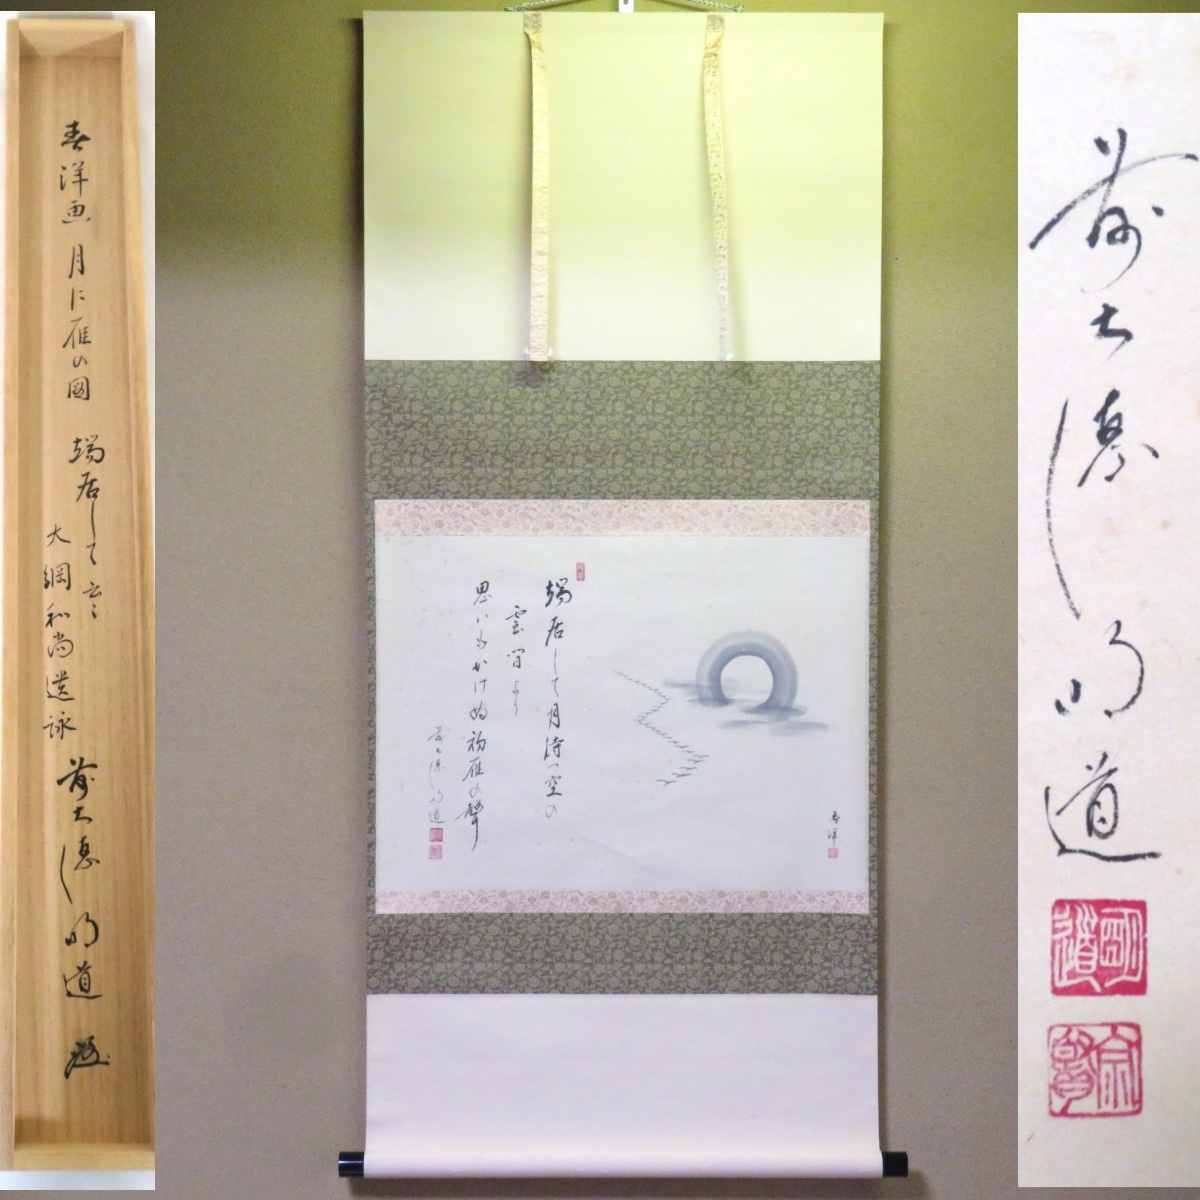 春洋画 月に雁の図
端居して云々
大綱和尚遺詠
前大徳 明道
端居して月待つ空の
雲間より
思いもかけぬ初雁の聲
前大徳 明道
春洋
前大徳
明道
明道